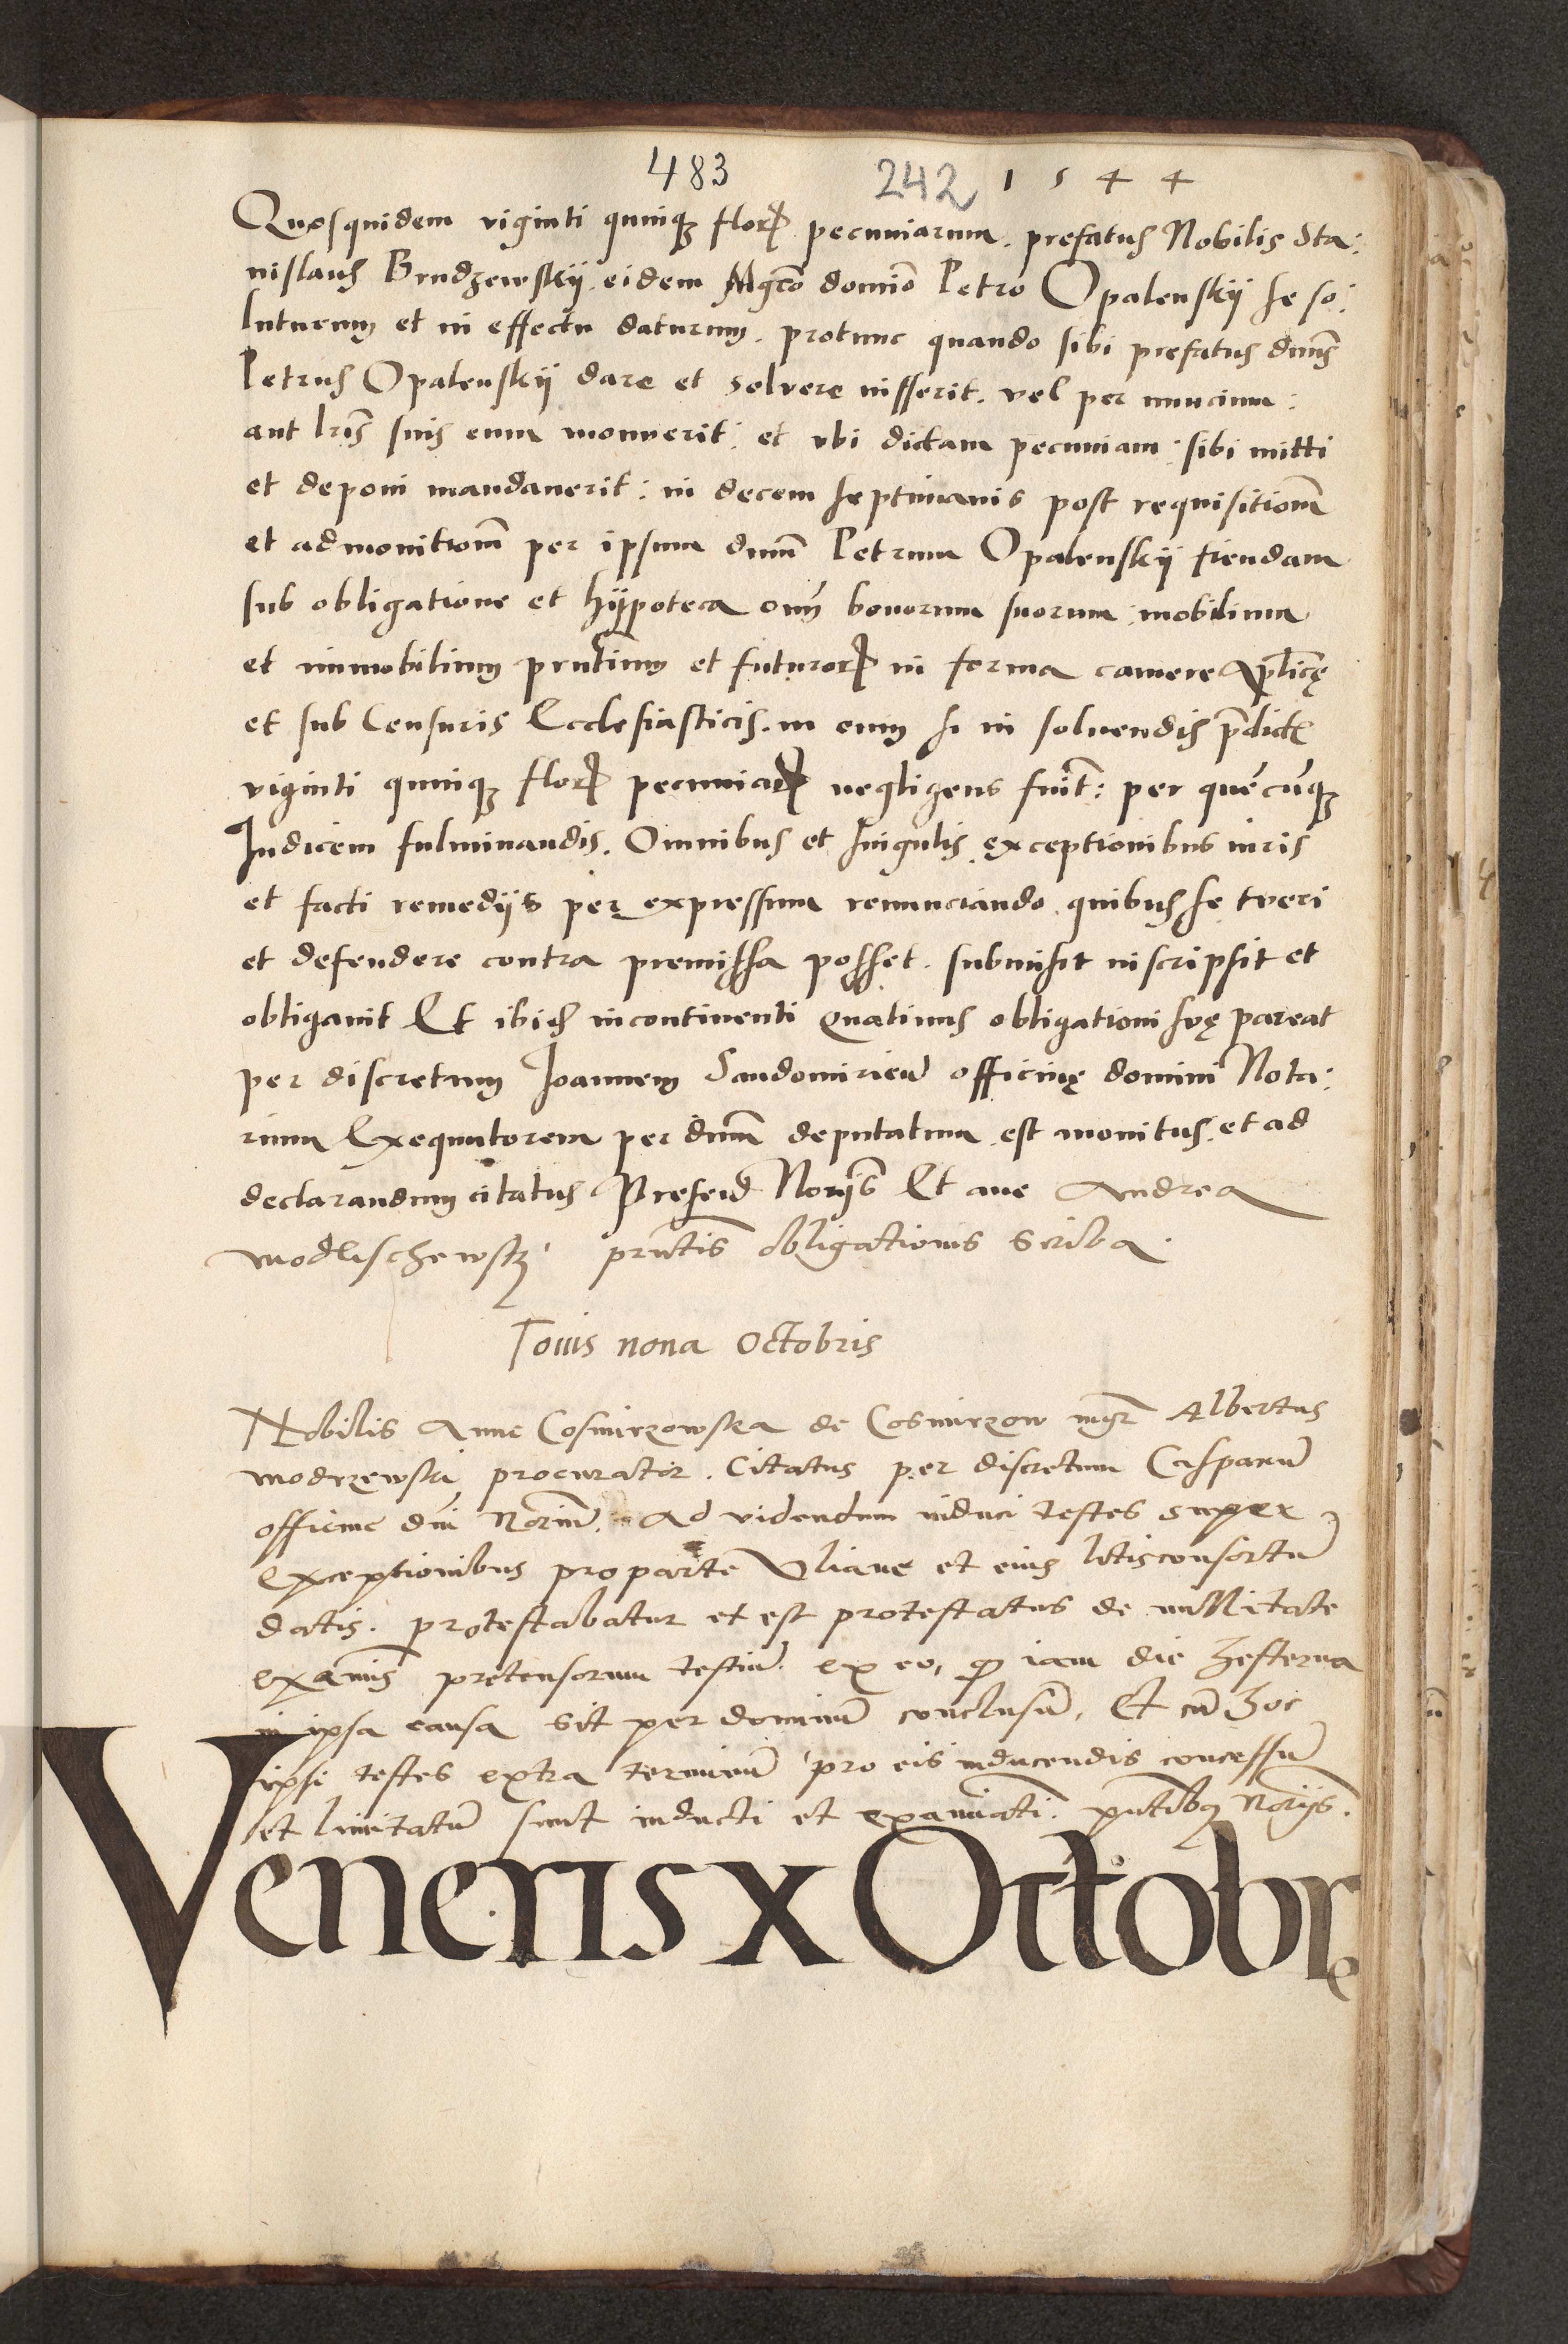 483 242 1544
Quosquidem viginti quinqꝫ florꝝ pecuniarum. prefatus Nobilis Sta:
nislaus Brudzewskij eidem Mgco domio Petro Opalenskij se so:
luturum et in effectu daturum. protunc quando sibi prefatus dnus
Petrus Opalenskij dare et solvere iusserit. vel per nuncium:
aut lris suis eum monuerit: et vbi dictam pecuniam: sibi mitti
et deponi mandauerit: in decem septimanis post requisitionem
et admonitionem per ipsum dnum Petrum Opalenskij fiendam
sub obligatione et hijpoteca omn bonorum suorum: mobilium
et immobilium pntium et futurorꝝ in forma camere Aplice
et sub Censuris Ecclesiasticis. in eum si in soluendis pdict
viginti quinqꝫ florꝝ pecuniarꝝ negligens fuit: per quecuqꝫ
Judicem fulminandis. Omnibus et singulis exceptionibus iuris
et facti remedijs per expressum renunciando quibus se tueri
et defendere contra premissa posset. submisit inscripsit et
obligauit Et ibid incontinenti quatinus obligationi suę pareat
per discretum Joannem Sandomirien officinę domini Nota:
rium Exequutorem per dnum deputatum est monitus. et ad
declarandum citatus Presend Norijs Et me Andrea
modlischewsky pntis obligationis scriba.
Iouis nona Octobris
Nobilis Anne Cosmirzowska de Cosmirzow mgr Albertus
modrzewski procurator. Citatus per discretum Casparum
officine dni Norium. Ad videndum induci testes super
exceptionibus pro parte Vliane et eius litisconsortum
datis. protestabatur et est protestatus de nullitate
examis pretensorum testium. ex eo, ꝙ iam die hesterna
in ipsa causa sit per dominum conclusum, Et cum hoc
ipsi testes extra terminum pro eis inducendis concessum
et limitatum sunt inducti et examinati. pntibus norijs.
Veneris X Octobr